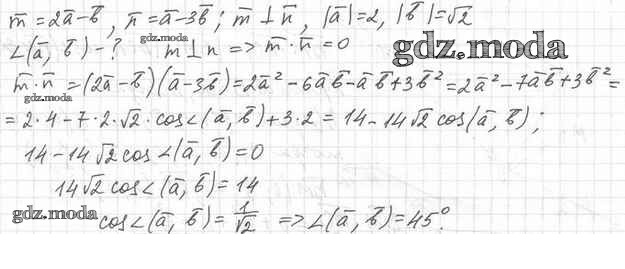 m̄ = 2ā - b̄, n̄ = ā - 3b̄; m̄ ⊥ n̄, |ā| = 2, |b̄| = √2
gdz.moda
∠(ā, b̄) - ? m ⊥ n => m̄ · n̄ = 0
gdz.moda
m̄ · n̄ = (2ā - b̄)(ā - 3b̄) = 2ā² - 6āb̄ - āb̄ + 3b̄² = 2ā² - 7āb̄ + 3b̄² =
gdz.moda
= 2·4 - 7·2·√2·cos∠(ā, b̄) + 3·2 = 14 - 14√2 cos(ā, b̄);
14 - 14√2 cos∠(ā, b̄) = 0
14√2 cos∠(ā, b̄) = 14
gdz.moda
cos∠(ā, b̄) = 1/√2 => ∠(ā, b̄) = 45°.